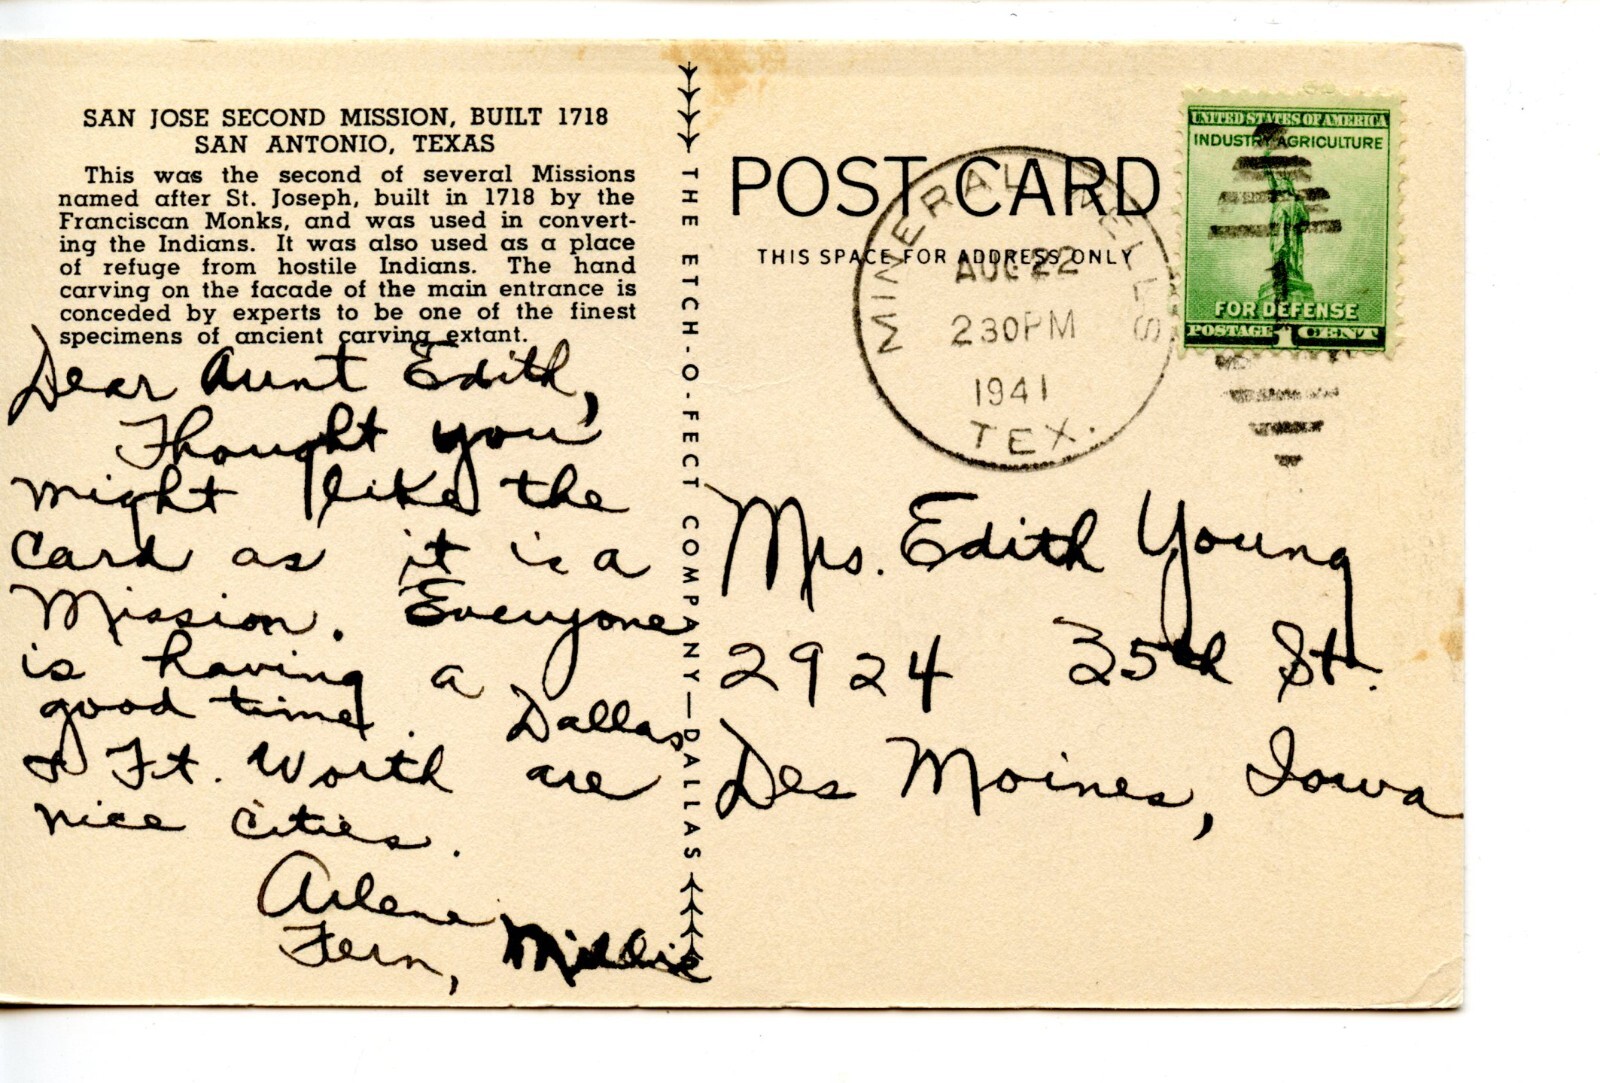 SAN JOSE SECOND MISSION, BUILT 1718
SAN ANTONIO, TEXAS
This was the second of several Missions
named after St. Joseph, built in 1718 by the
Franciscan Monks, and was used in convert-
ing the Indians. It was also used as a place
of refuge from hostile Indians. The hand
carving on the facade of the main entrance is
conceded by experts to be one of the finest
specimens of ancient carving extant.
Dear Aunt Edith,
Thought you
might like the
card as it is a
Mission. Everyone
is having a
good time. Dallas
& Ft. Worth are
nice cities.
Arlene
Fern, Millie
THE ETCH-O-FECT COMPANY—DALLAS
POST CARD
THIS SPACE FOR ADDRESS ONLY
MINERAL WELLS
AUG 22
230PM
1941
TEX.
UNITED STATES OF AMERICA
INDUSTRY AGRICULTURE
FOR DEFENSE
POSTAGE 1 CENT
Mrs. Edith Young
2924 35th St.
Des Moines, Iowa